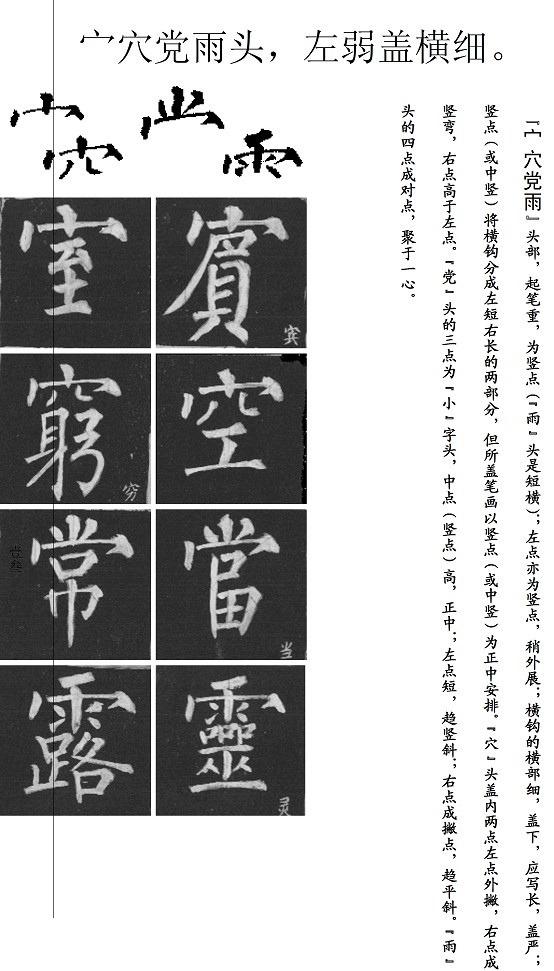 宀穴党雨头，左弱盖横细。
『宀穴党雨』头部，起笔重，为竖点（『雨』头是短横）；左点亦为竖点，稍外展；横钩的横部细，盖下，应写长，盖严；
竖点（或中竖）将横钩分成左短右长的两部分，但所盖笔画以竖点（或中竖）为正中安排。『穴』头盖内两点左点外撇，右点成
竖弯，右点高于左点。『党』头的三点为『小』字头，中点（竖点）高，正中；左点短，趋竖斜；右点成撇点，趋平斜。『雨』
头的四点成对点，聚于一心。
宀
穴
雨
賓
宾
室
空
窮
穷
當
当
常
靈
灵
露